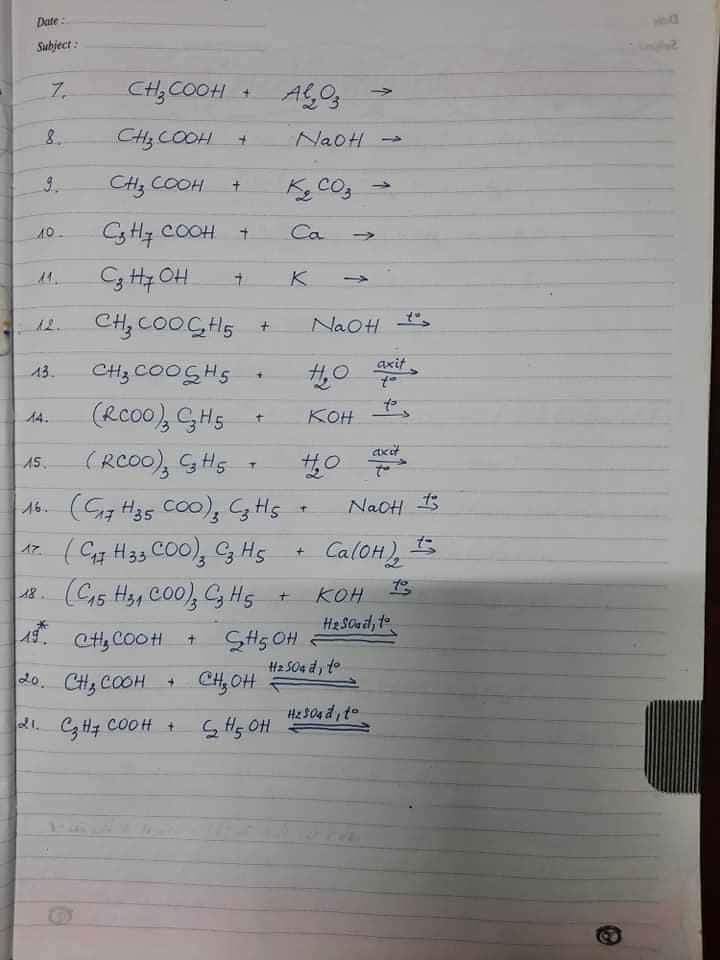 Date :
Subject :
7. CH₃COOH + Al₂O₃ →
8. CH₃COOH + NaOH →
9. CH₃COOH + K₂CO₃ →
10. C₃H₇COOH + Ca →
11. C₃H₇OH + K →
12. CH₃COOC₂H₅ + NaOH t° →
13. CH₃COOC₂H₅ + H₂O axit t° →
14. (RCOO)₃C₃H₅ + KOH t° →
15. (RCOO)₃C₃H₅ + H₂O axit t° →
16. (C₁₇H₃₅COO)₃C₃H₅ + NaOH t° →
17. (C₁₇H₃₃COO)₃C₃H₅ + Ca(OH)₂ t° →
18. (C₁₅H₃₁COO)₃C₃H₅ + KOH t° →
19*. CH₃COOH + C₂H₅OH H₂SO₄đ, t° ⇌
20. CH₃COOH + CH₃OH H₂SO₄đ, t° ⇌
21. C₃H₇COOH + C₂H₅OH H₂SO₄đ, t° ⇌